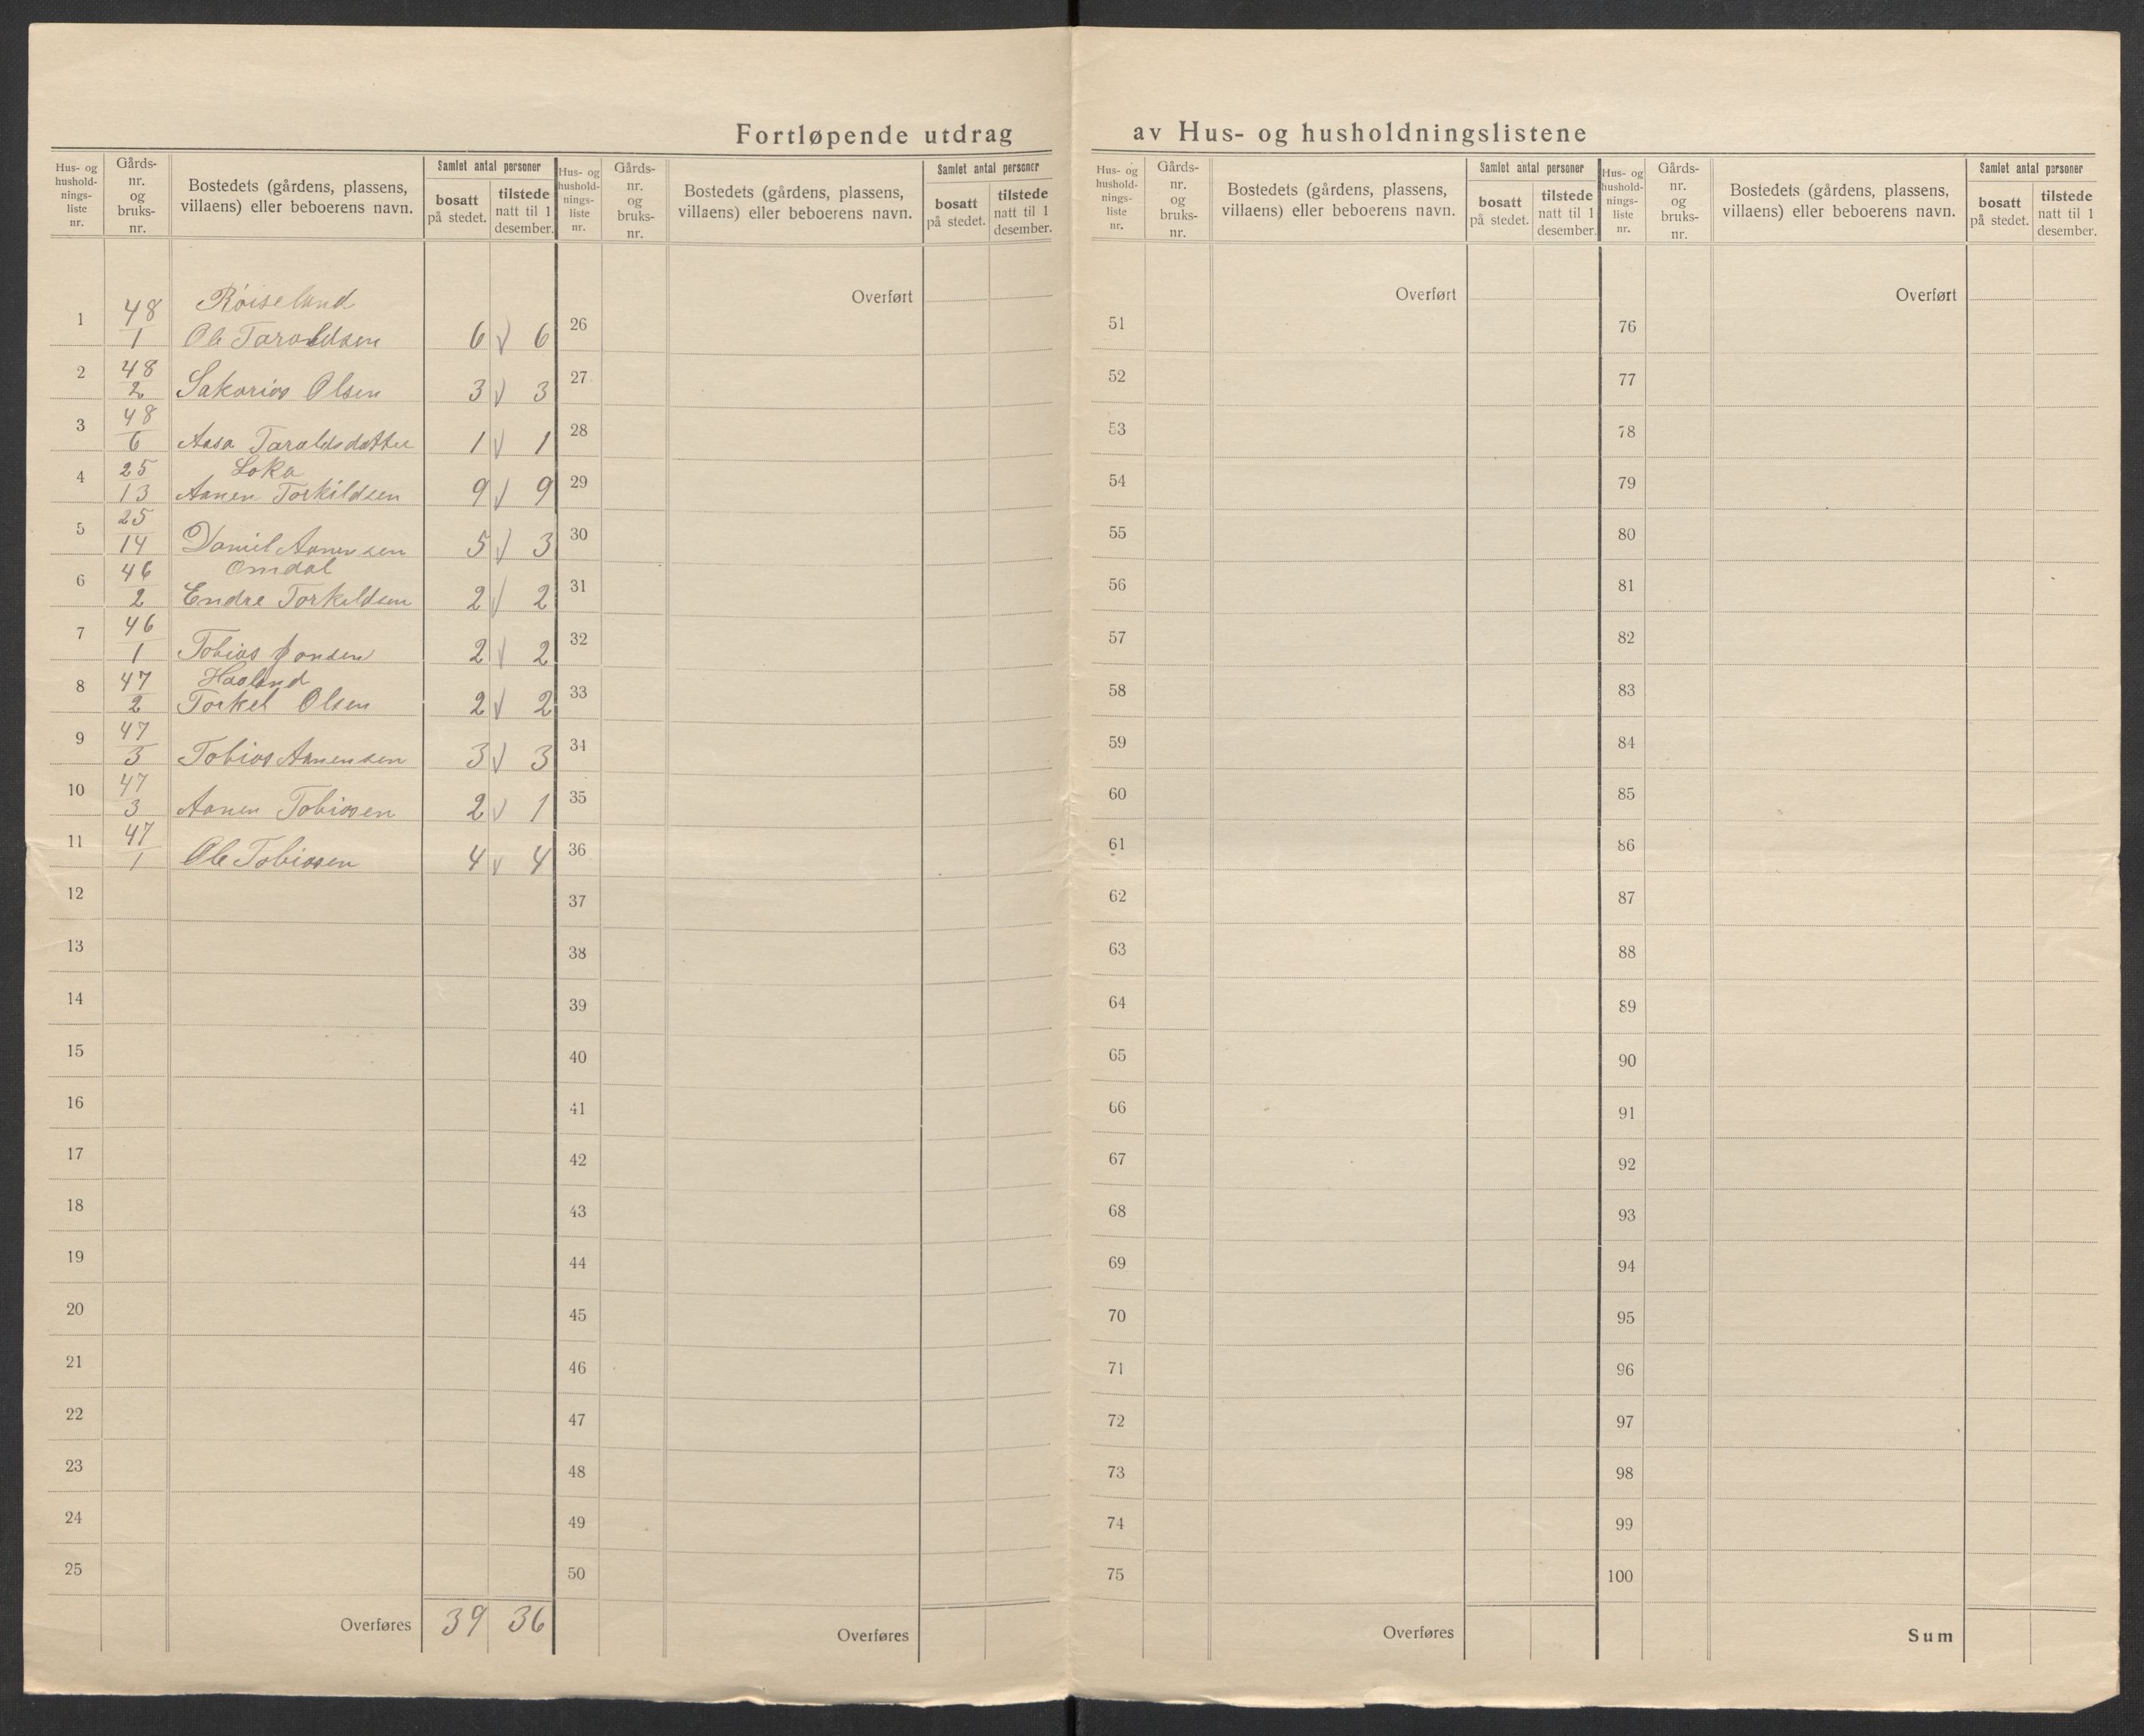 Fortløpende utdrag av Hus- og husholdningslistene
Hus- og hushold-nings-liste nr.
Gårds-nr. og bruks-nr.
Bostedets (gårdens, plassens, villaens) eller beboerens navn.
Samlet antal personer
bosatt på stedet.
tilstede natt til 1 desember.
Hus- og hushold-nings-liste nr.
Gårds-nr. og bruks-nr.
Bostedets (gårdens, plassens, villaens) eller beboerens navn.
Samlet antal personer
bosatt på stedet.
tilstede natt til 1 desember.
Hus- og hushold-nings-liste nr.
Gårds-nr. og bruks-nr.
Bostedets (gårdens, plassens, villaens) eller beboerens navn.
Samlet antal personer
bosatt på stedet.
tilstede natt til 1 desember.
Hus- og hushold-nings-liste nr.
Gårds-nr. og bruks-nr.
Bostedets (gårdens, plassens, villaens) eller beboerens navn.
Samlet antal personer
bosatt på stedet.
tilstede natt til 1 desember.
Røiseland
1 48/1 Ole Taraldsen 6 √ 6
2 48/2 Sakarias Olsen 3 √ 3
3 48/6 Aasa Taraldsdatter 1 √ 1
Loka
4 25/13 Aanen Torkildsen 9 √ 9
5 25/14 Daniel Aanensen 5 √ 3
Omdal
6 46/2 Endre Torkildsen 2 √ 2
7 46/1 Tobias Jonsen 2 √ 2
Haaland
8 47/2 Torkel Olsen 2 √ 2
9 47/3 Tobias Aanensen 3 √ 3
10 47/3 Aanen Tobiasen 2 √ 1
11 47/1 Ole Tobiasen 4 √ 4
12
13
14
15
16
17
18
19
20
21
22
23
24
25
Overføres 39 36
Overført
26
27
28
29
30
31
32
33
34
35
36
37
38
39
40
41
42
43
44
45
46
47
48
49
50
Overføres
Overført
51
52
53
54
55
56
57
58
59
60
61
62
63
64
65
66
67
68
69
70
71
72
73
74
75
Overføres
Overført
76
77
78
79
80
81
82
83
84
85
86
87
88
89
90
91
92
93
94
95
96
97
98
99
100
Sum